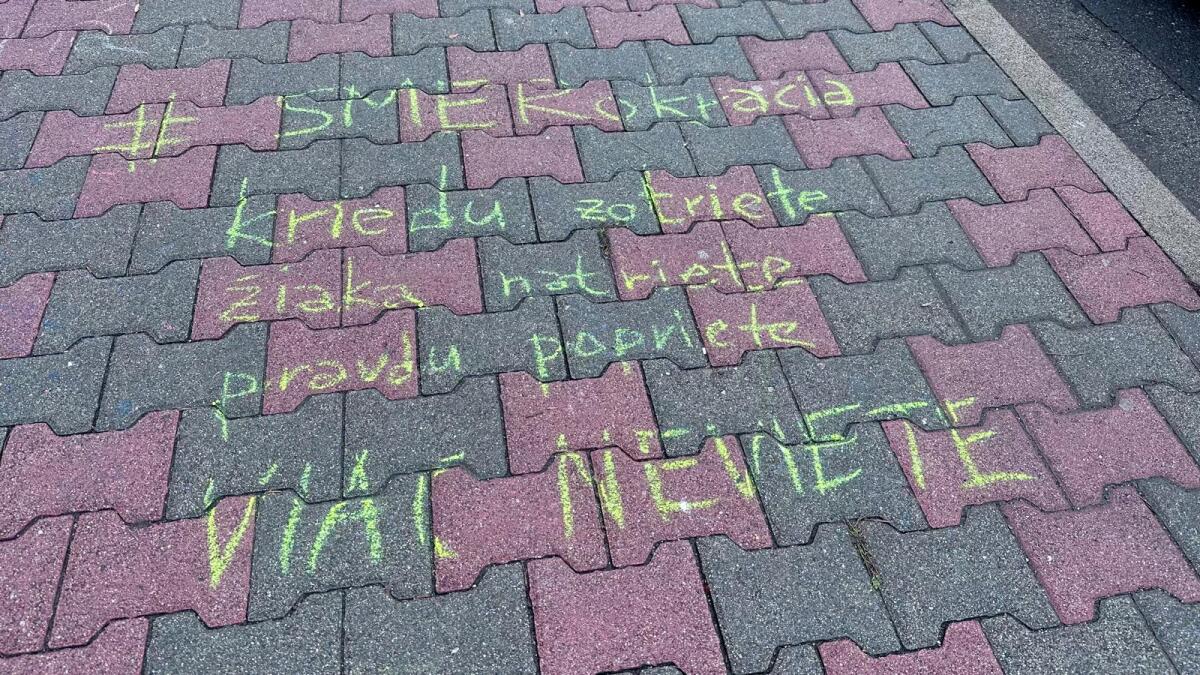 #SMEKokracia
kriedu zotriete
žiaka natriete
pravdu popriete
VIAC NEVIETE